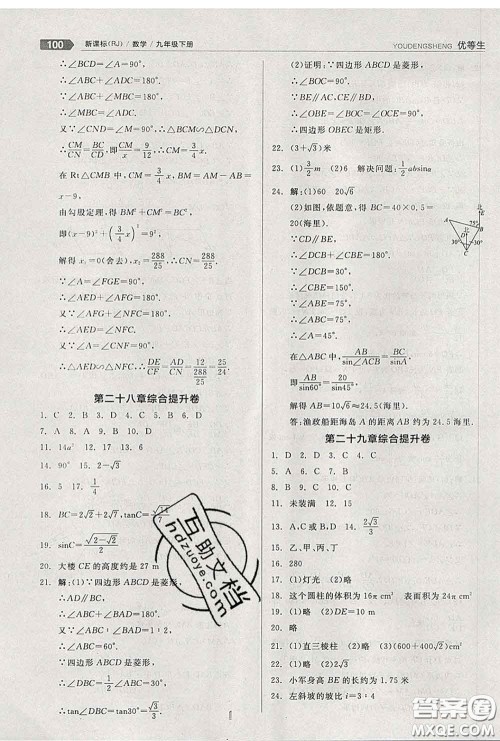 100 新课标(RJ)/数学/九年级下册
YOUDENGSHENG 优等生
∴∠BCD=∠ACN=90°,
∴∠ABC+∠ADC=180°.
又∵∠ABC+∠CBM=180°,
∴∠ADC=∠CBM.
又∵∠CND=∠M=90°,∴△BCM∽△DCN,
∴CM/CN=BC/CD,即CM/x=9/12,∴CM=3/4x.
在Rt△CMB中,CM=3/4x,BM=AM-AB=
x-9,
由勾股定理,得BM²+CM²=BC²,
即(x-9)²+(3/4x)²=9²,
解得x₁=0(舍去),x₂=288/25,∴CN=288/25.
∵∠A=∠FGE=90°,
∴∠AED+∠AFG=180°.
又∵∠AFG+∠NFC=180°,
∴∠AED=∠NFC,
∴△AED∽△NFC,∴DE/CF=AD/CN=12/(288/25)=25/24.
第二十八章综合提升卷
1. C 2. B 3. A 4. C 5. B 6. B 7. D
8. D 9. A 10. D
11. 14a² 12. 17 13. 90°
14. 9.5 15. 2-√3
16. 5 17. 1/5
19. sinC=√(√2-√2)/2
20. 大楼CE的高度约是27 m
21. 解:(1)∵四边形ABCD是菱形,
∴AD∥BC,
∴∠ABC+∠BAD=180°.
又∵∠ABC∶∠BAD=1∶2,
∴∠ABC=60°.
∵四边形ABCD是菱形,
∴∠DBC=1/2∠ABC=30°,
∴tan∠DBC=tan30°=√3/3.
(2)证明:∵四边形ABCD是菱形,
∴AC⊥BD,∴∠BOC=90°.
∵BE∥AC,CE∥BD,
∴四边形OBEC是平行四边形.
又∵∠BOC=90°,
∴四边形OBEC是矩形.
22. (3+√3)米
23. (1)3/2m (2)6 解决问题:1/2absinα
24. 解:(1)60 20√6
(2)如图,依题意,得BC=40×0.5=
20(海里).
∵∠DCB=30°,∠CBE=150°.
∵DC∥BE,
∴∠DCB+∠CBE=180°,
∴∠DCB=30°,
∴∠ACB=60°.
∵∠ABC=75°,
∴∠A=45°.
A B C D E 30° 30°
∵AB/sin∠ACB=BC/sinA,
即AB/sin60°=20/sin45°,
解得AB=10√6≈24.5(海里).
答:渔政船距海岛A的距离AB约为24.5海里.
第二十九章综合提升卷
1. D 2. C 3. B 4. A 5. C 6. D 7. A
8. C 9. A 10. C
11. 未装满 12. 20 13. 4 14. 2√3/3
15. 乙、丙、甲、丁
16. 280
17. (1)灯光 (2)略
18. 这个圆柱的体积为10πcm³ 表面积为24πcm²
19. (1)略 (2)DE=10 m
20. (1)略 (2)略
21. (1)直三棱柱 (2)略 (3)(600+400√2)cm²
22. (1)略 (2)略
23. 小军身高BE的长约为1.75米
24. 左斜坡的坡比i=3∶4
互助文档
hdzuoye.com
MXQE.COM